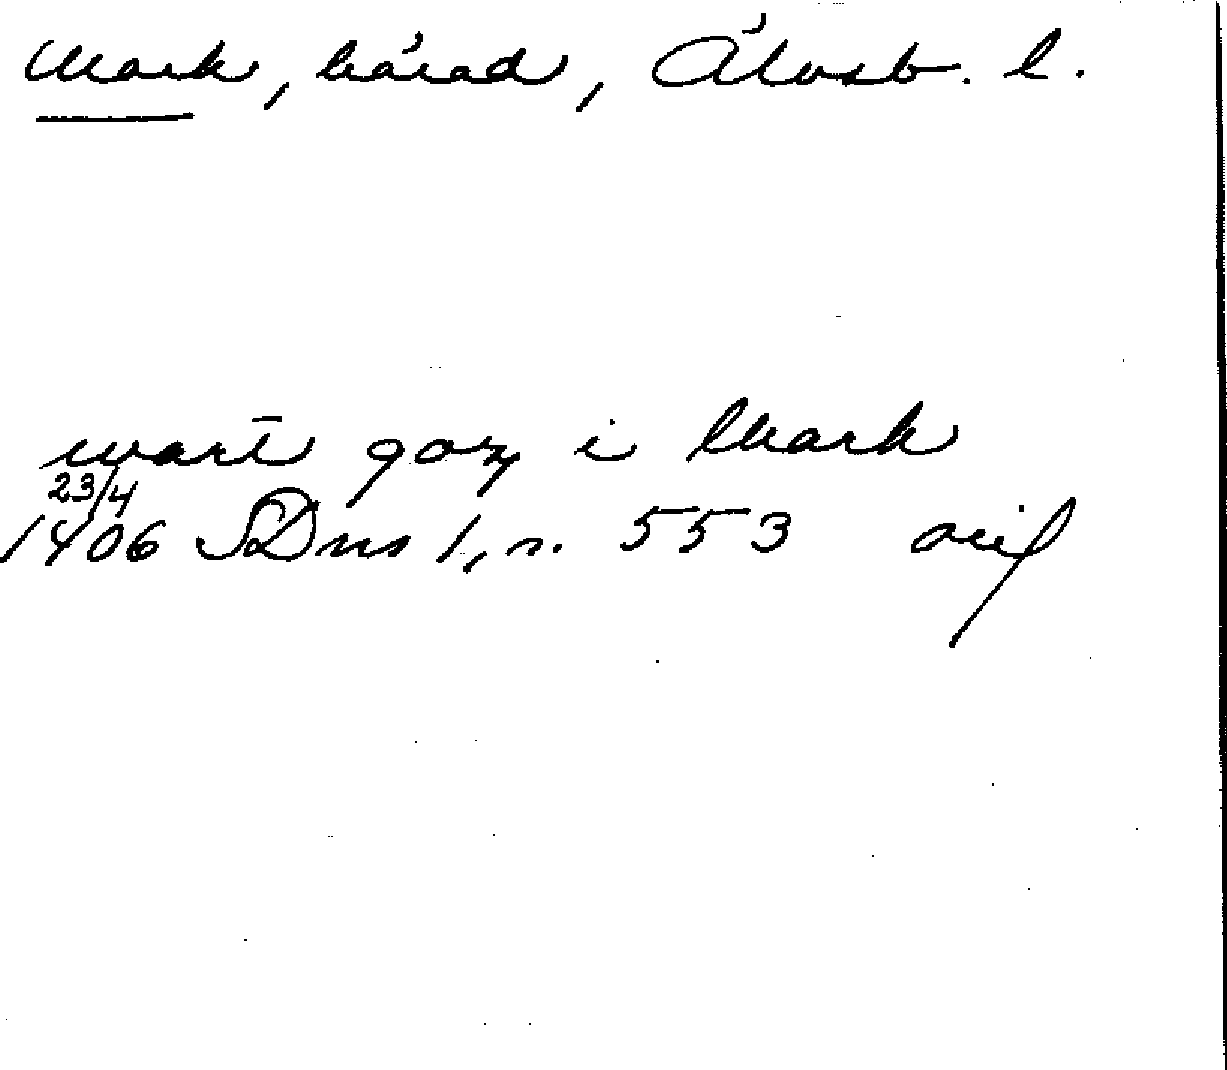 Mark, härad, Älvsb. l.
wart goz i Mark
23/4
1406 SDns 1, s. 553 orig